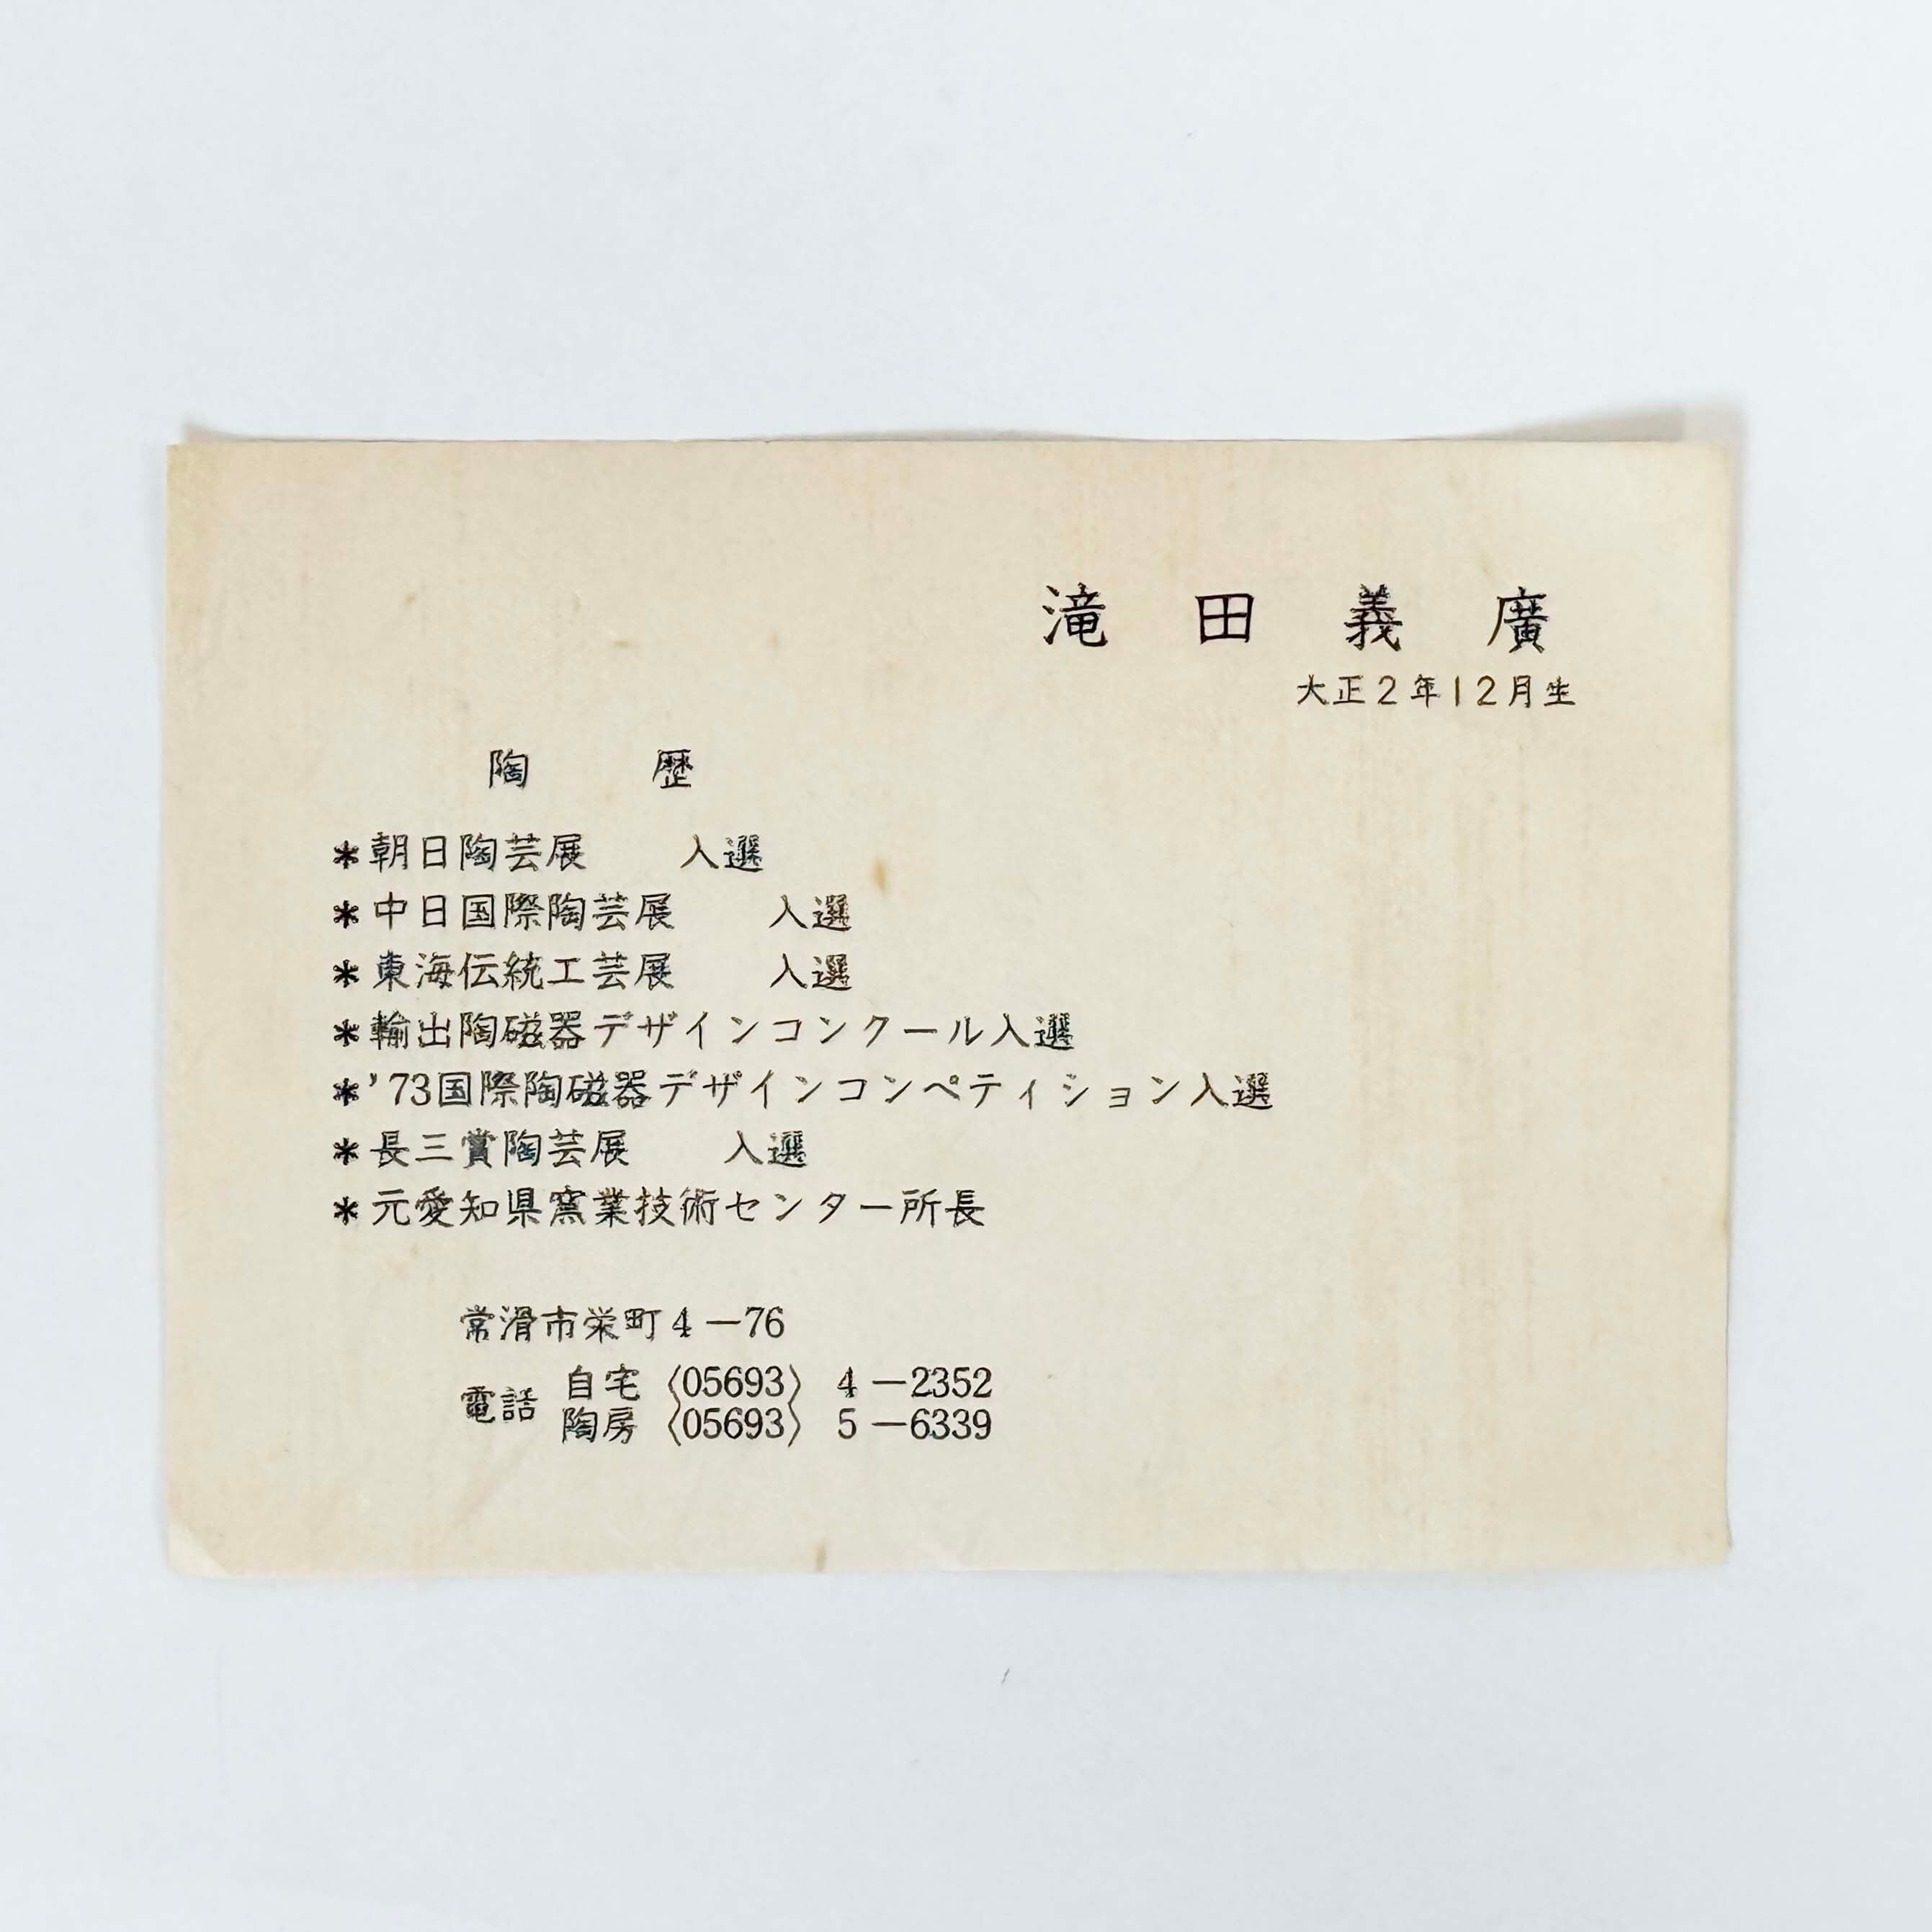 滝田義廣
大正2年12月生
陶歴
*朝日陶芸展 入選
*中日国際陶芸展 入選
*東海伝統工芸展 入選
*輸出陶磁器デザインコンクール入選
*'73国際陶磁器デザインコンペティション入選
*長三賞陶芸展 入選
*元愛知県窯業技術センター所長
常滑市栄町4－76
電話 自宅〈05693〉4－2352
陶房〈05693〉5－6339